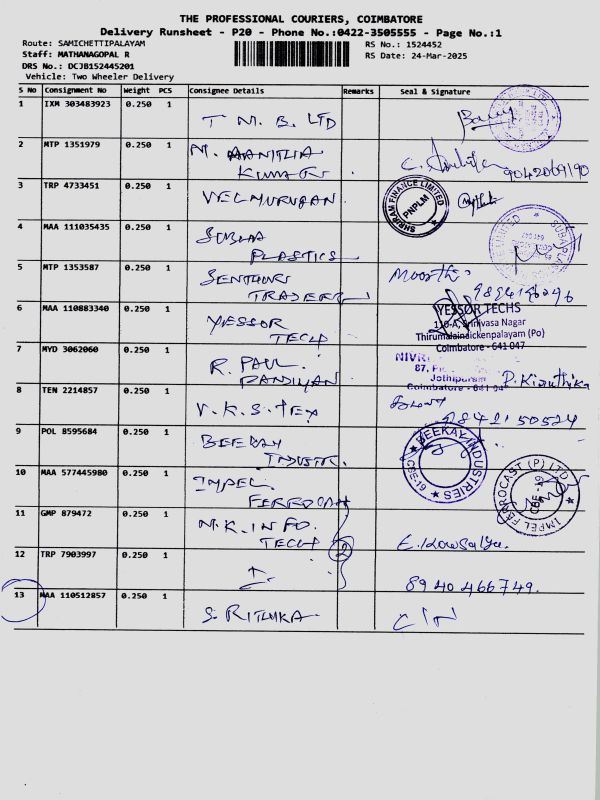 THE PROFESSIONAL COURIERS, COIMBATORE
Delivery Runsheet - P20 - Phone No.:0422-3505555 - Page No.:1
Route: SAMICHETTIPALAYAM
RS No.: 1524452
Staff: MATHANAGOPAL R
RS Date: 24-Mar-2025
DRS No.: DCJB152445201
Vehicle: Two Wheeler Delivery
S No Consignment No Weight PCS Consignee Details Remarks Seal & Signature
1 IXM 303483923 0.250 1
T M. B. LTD
2 MTP 1351979 0.250 1
KUMAR
9042069190
3 TRP 4733451 0.250 1
VELMURUGAN
SHRIRAM FINANCE LIMITED
PNPLM
4 MAA 111035435 0.250 1
PLASTICS
5 MTP 1353587 0.250 1
TRADERS
Moorthi
6 MAA 110883340 0.250 1
YESSOR
TECH
YESSOR TECHS
110-A, Srinivasa Nagar
Thirumalainaickenpalayam (Po)
Coimbatore - 641 047
7 MYD 3062060 0.250 1
R. PAUL
PANDIYAN
87,
Jothipuram
Coimbatore - 641 04
P. Kiruthika
8 TEN 2214857 0.250 1
V. K. S. TEX
9842150524
9 POL 8595684 0.250 1
BEEKAY
BEEKAY INDUSTRIES
CBE-19
10 MAA 577445980 0.250 1
IMPEL
IMPEL FERROCAST (P) LTD
CBE-19
11 GMP 879472 0.250 1
M. K. INFO.
TECH
2
E. Kowsalya.
12 TRP 7903997 0.250 1
8940466749.
13 MAA 110512857 0.250 1
S. RITHIKA